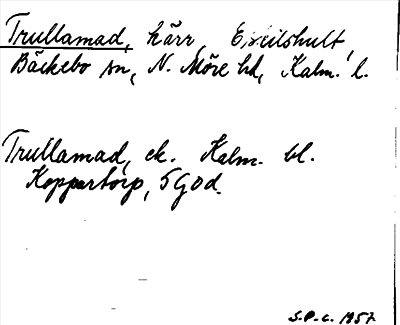 Trullamad, kärr, Eskilshult,
Bäckebo sn, N. Möre hd, Kalm. l.
Trullamad, ek. Kalm. bl.
Koppartorp, 5 God.
S.P.c. 1957